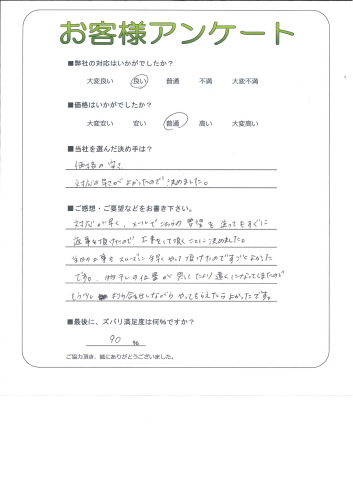 お客様アンケート
■弊社の対応はいかがでしたか?
大変良い 良い 普通 不満 大変不満
■価格はいかがでしたか?
大変安い 安い 普通 高い 大変高い
■当社を選んだ決め手は?
価格の安さ
対応の良さがよかったので決めました。
■ご感想・ご要望などをお書き下さい。
対応が早く、メールでこちらの要望を送ってもすぐに
返事を頂けたので、工事をして頂くことに決めました。
当日の工事もスムーズに手早くやって頂けたのですごくよかった
です。の位置が思ってたより遠くになってしまたので
もう少し打ち合わせしながらやってもらえたらよかったです。
■最後に、ズバリ満足度は何%ですか?
90 %
ご協力頂き、誠にありがとうございました。